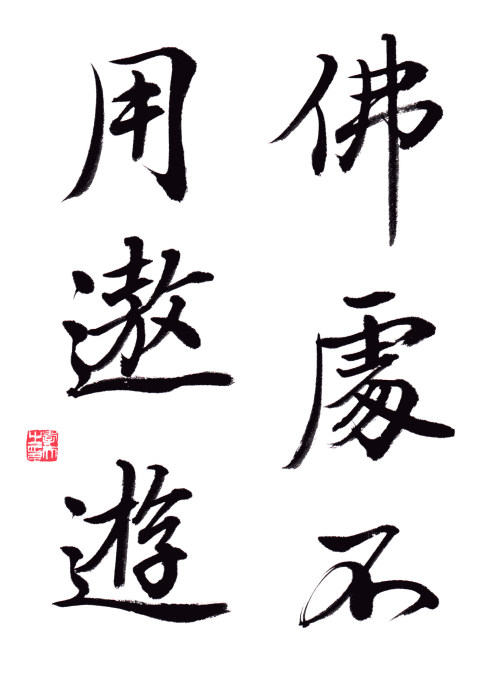 佛處不
用遨遊